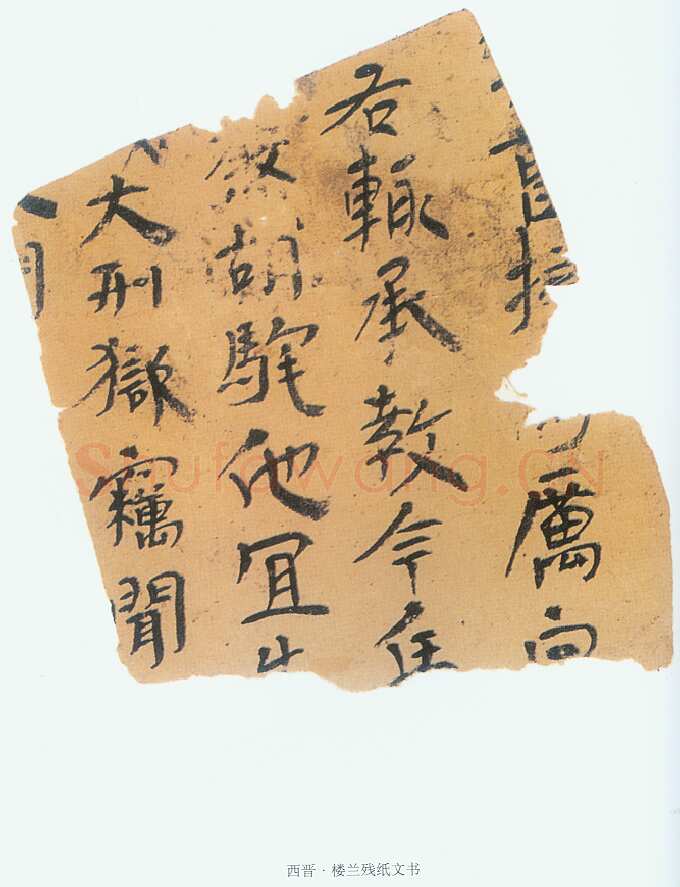 厲向
右輒承教今
胡駝他宜
大刑獄竊聞
Shufawang.CN
西晋·楼兰残纸文书